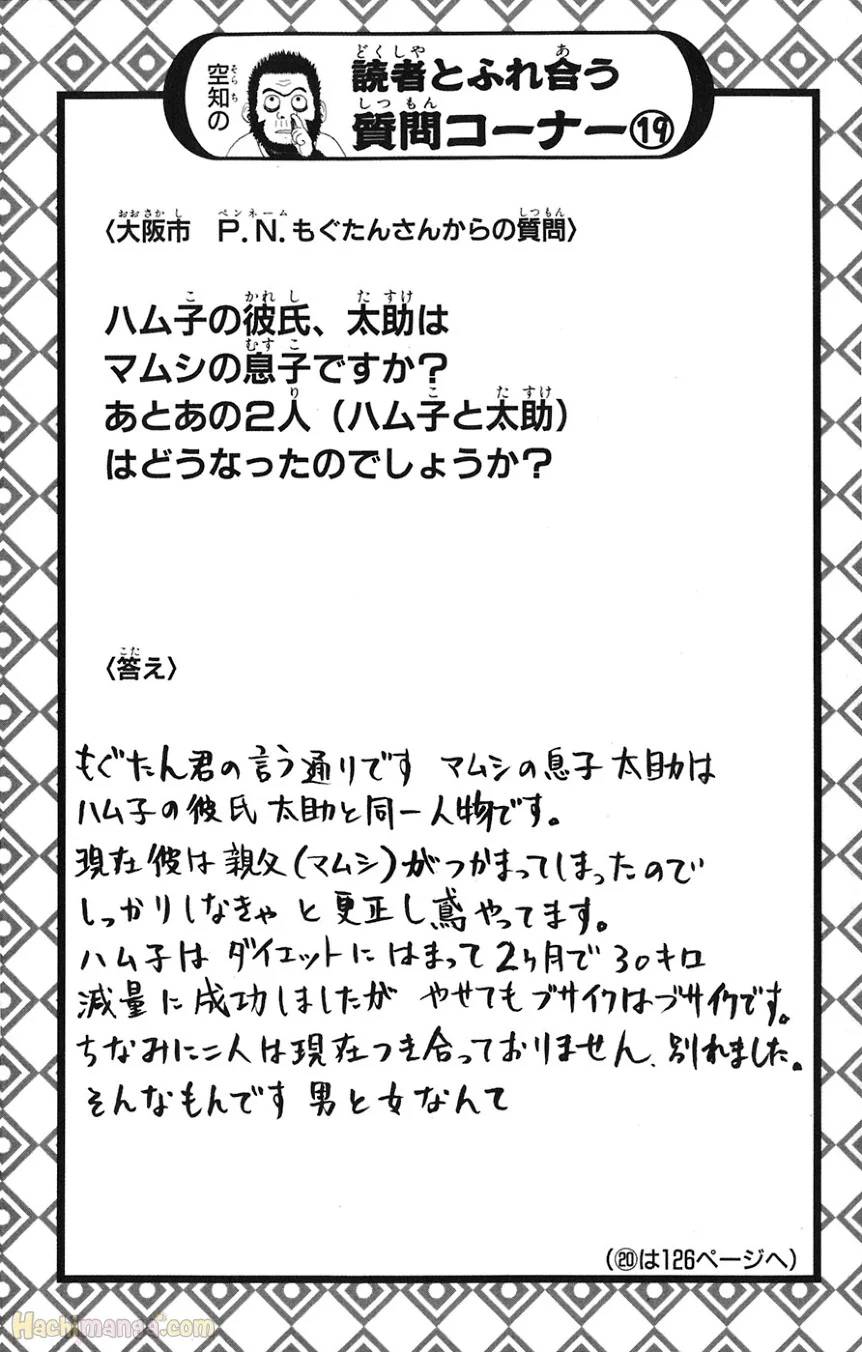 空知の
読者とふれ合う
質問コーナー⑲
〈大阪市　P.N.もぐたんさんからの質問〉
ハム子の彼氏、太助は
マムシの息子ですか？
あとあの２人（ハム子と太助）
はどうなったのでしょうか？
〈答え〉
もぐたん君の言う通りです マムシの息子 太助は
ハム子の彼氏 太助と同一人物です。
現在 彼は 親父(マムシ)がつかまってしまったので
しっかりしなきゃ と 更正し 鳶やってます。
ハム子は ダイエットに はまって 2ヶ月で 30キロ
減量に成功しましたが やせてもブサイクはブサイクです。
ちなみに二人は現在つき合っておりません、別れました。
そんなもんです 男と女なんて
（⑳は126ページへ）
Hachimanga.com